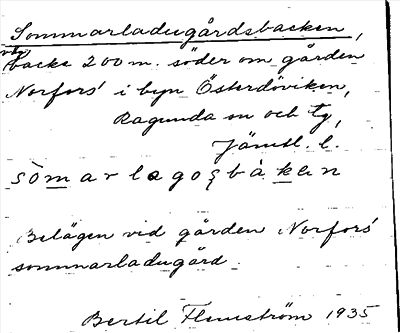 Sommarladugårdsbacken,
backe 200 m. söder om gården
Norfors' i byn Österdöviken,
Ragunda sn och tg,
Jämtl. l.
sòmarlagoʂbàken
Belägen vid gården Norfors'
sommarladugård.
Bertil Flemström 1935